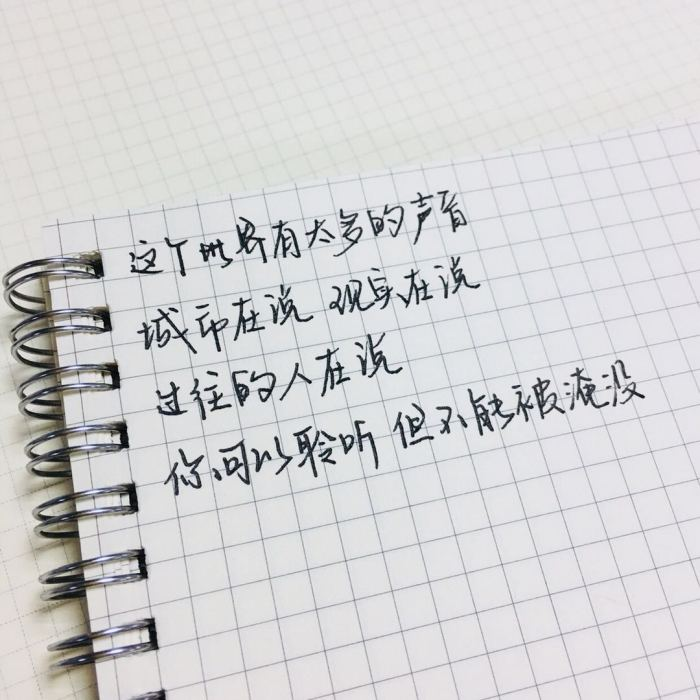 这个世界有太多的声音
城市在说 现实在说
过往的人在说
你可以聆听 但不能被淹没